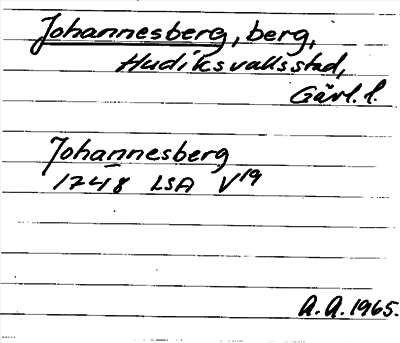 Johannesberg, berg,
Hudiksvalls stad,
Gävl. l.
Johannesberg
1748 LSA V19
A.A. 1965.